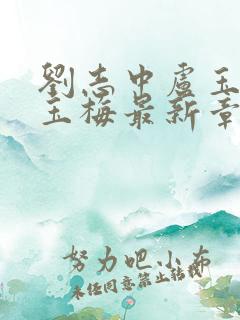 劉志中盧玉
玉梅最新章
努力吧小布
未经同意禁止转载